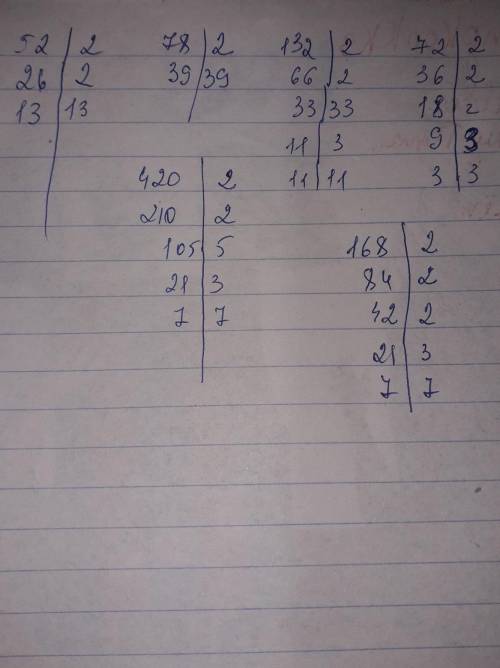 52 | 2
26 | 2
13 | 13
78 | 2
39 | 39
132 | 2
66 | 2
33 | 33
11 | 3
11 | 11
72 | 2
36 | 2
18 | 2
9 | 3
3 | 3
420 | 2
210 | 2
105 | 5
21 | 3
7 | 7
168 | 2
84 | 2
42 | 2
21 | 3
7 | 7